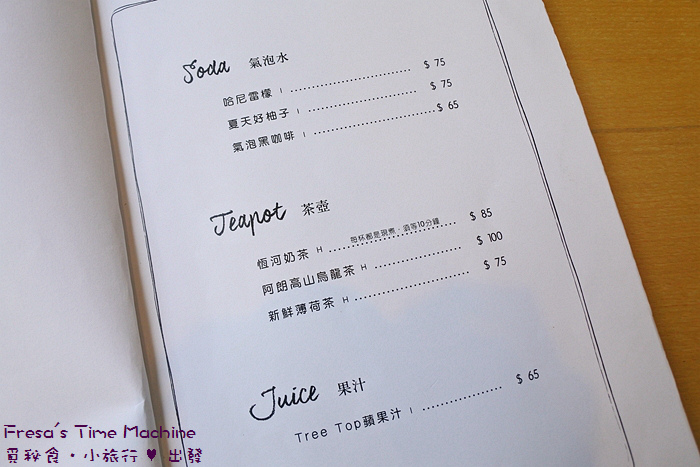 Soda 氣泡水
哈尼雷檬 I $ 75
夏天好柚子 I $ 75
氣泡黑咖啡 I $ 65
Teapot 茶壺
每杯都是現煮,須等10分鐘
恆河奶茶 H $ 85
阿朗高山烏龍茶 H $ 100
新鮮薄荷茶 H $ 75
Juice 果汁
Tree Top蘋果汁 I $ 65
Fresa's Time Machine
覓秘食・小旅行 ♥ 出發